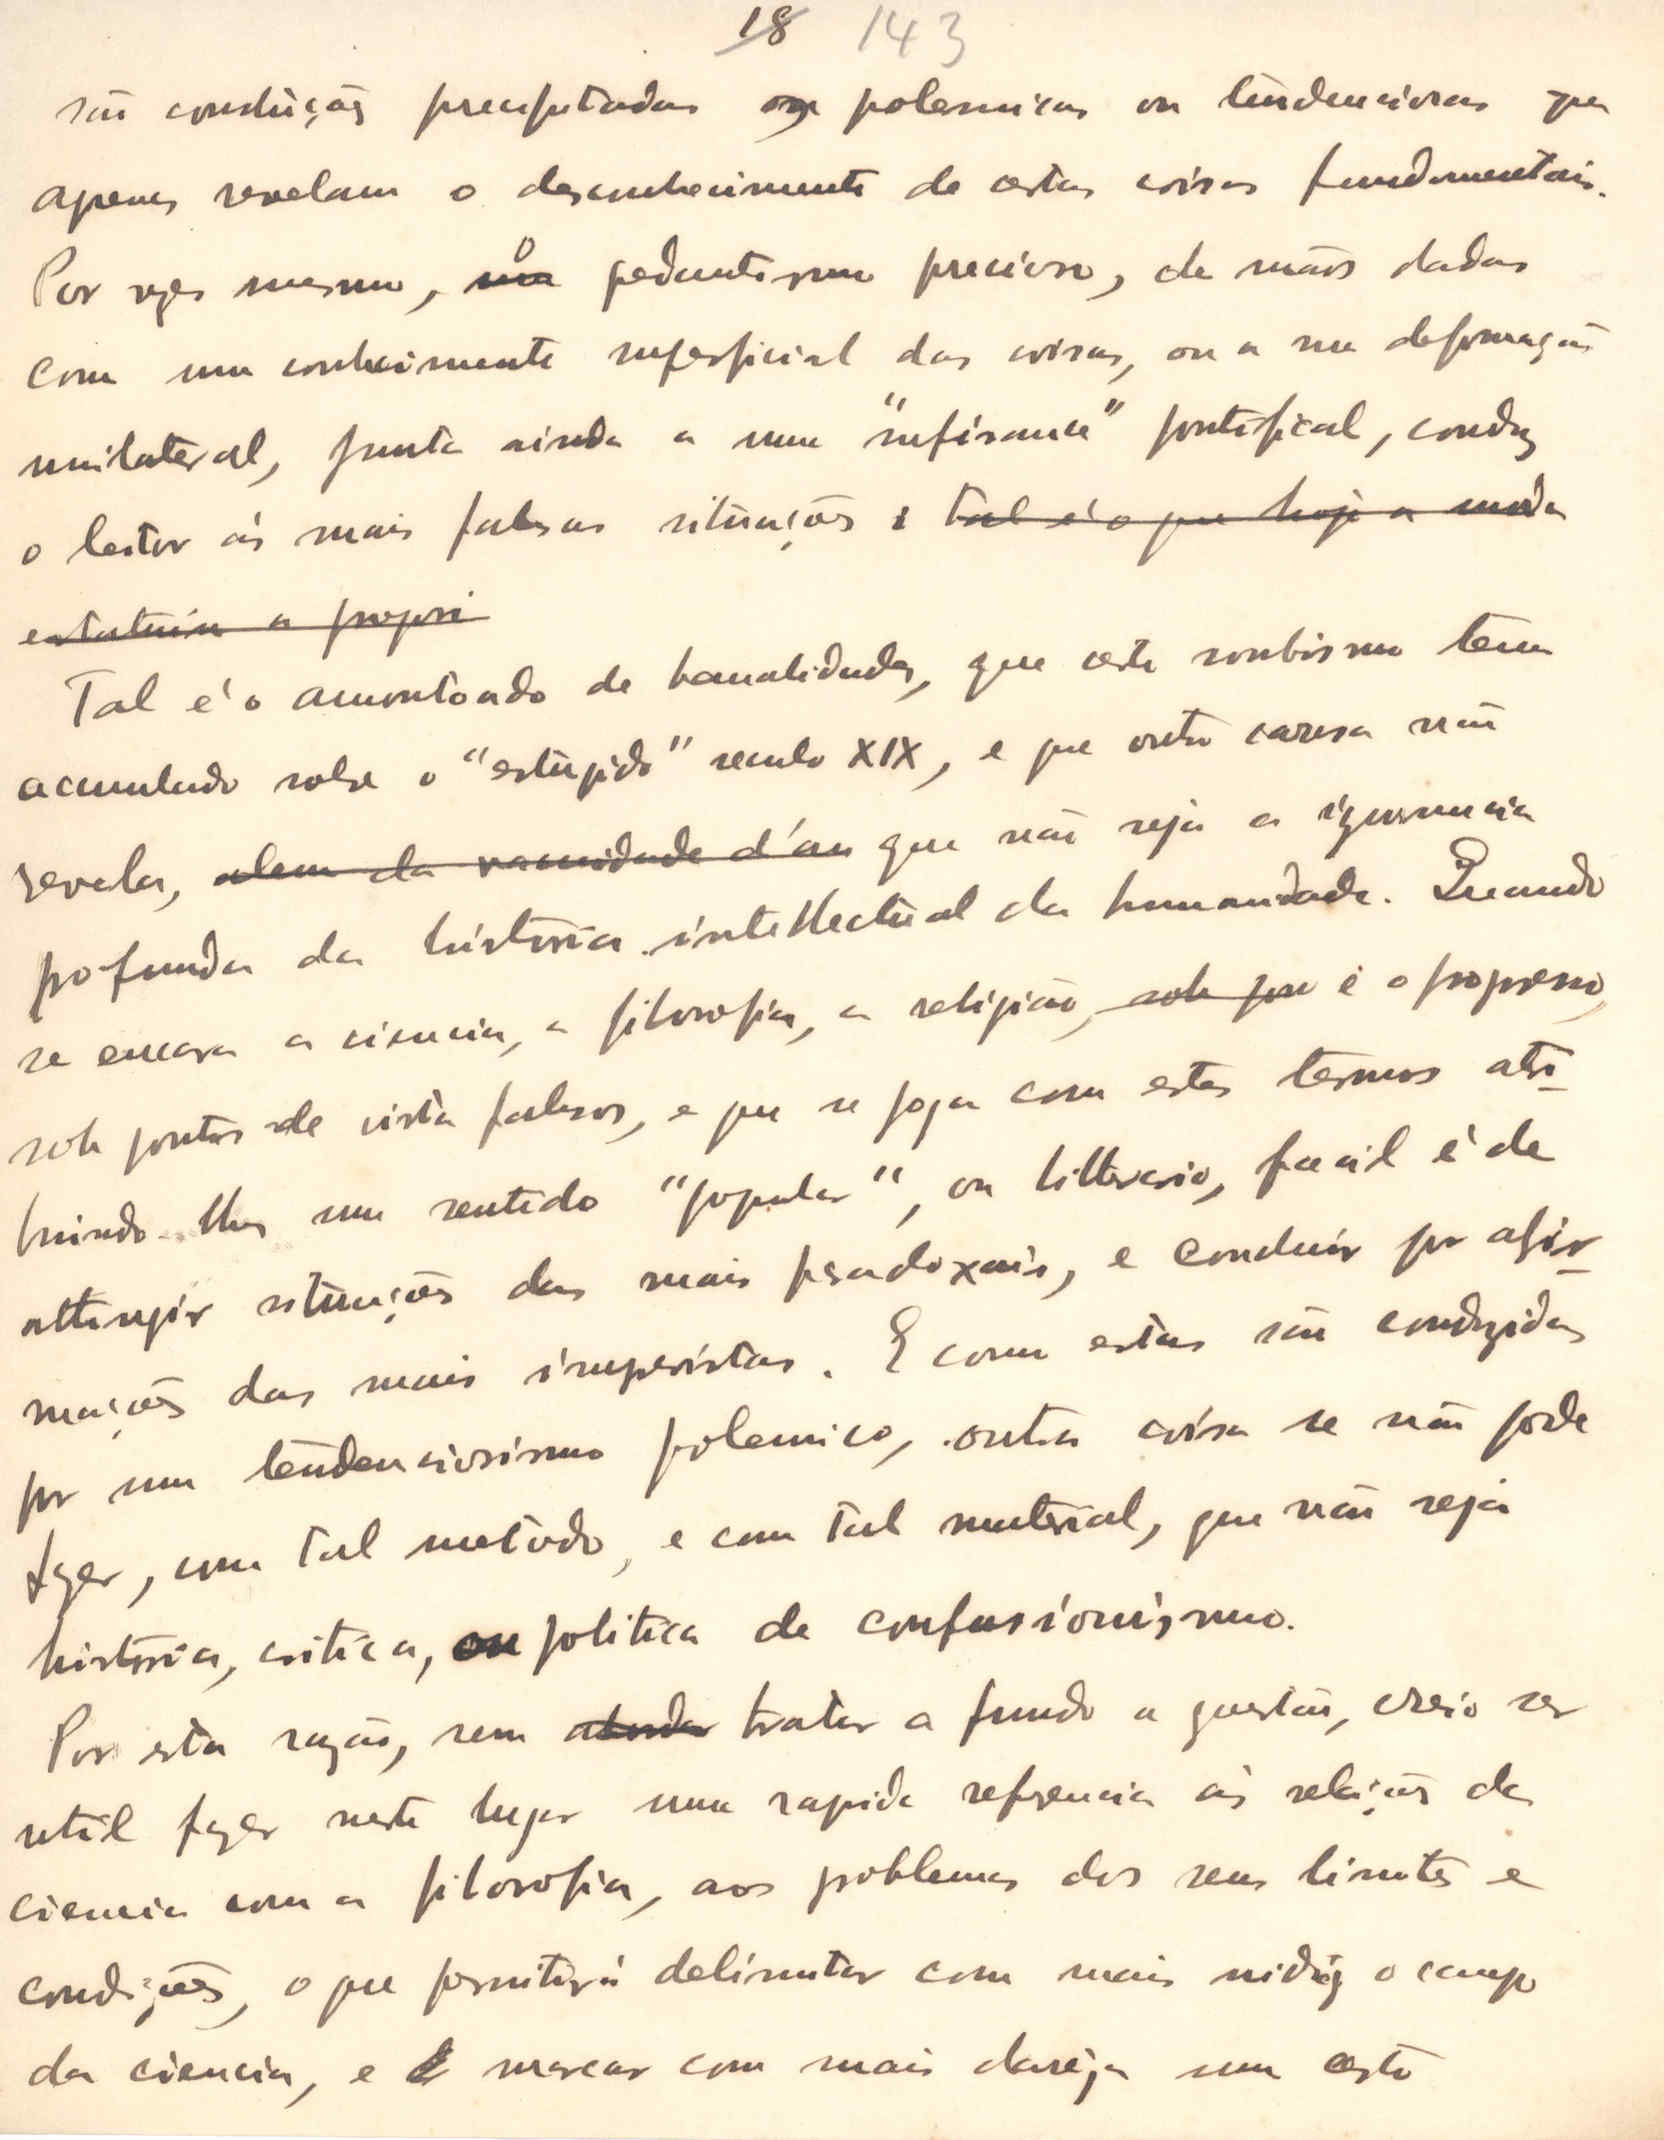 18 143
são conclusões precipitadas ou polemicas ou tendenciosas que
apenas revelam o desconhecimento de certas coisas fundamentais.
Por vezes mesmo, o pedantismo precioso, de mãos dadas
com um conhecimento superficial das coisas, ou a sua deformação
unilateral, junta ainda a uma "sufisance" pontifical, conduz
o leitor ás mais falsas situações : tal é o que hoje a moda
estatuiu a propri
Tal é o amontoado de banalidades, que certo snobismo tem
acumulado sobre o "estúpido" seculo XIX, e que outra causa não
revela, alem da vacuidade d'um que não seja a ignorancia
profunda da história intellectual da humanidade. Quando
se encara a ciencia, a filosofia, a religião, sob que é o progresso,
sob pontos de vista falsos, e que se joga com estes termos atri-
buindo-lhes um sentido "popular", ou litterario, facil é de
attingir situações das mais paradoxais, e concluir por afir-
mações das mais imprevistas. E como estas são conduzidas
por um tendenciosismo polemico, outra coisa se não pode
fazer, com tal metodo, e com tal material, que não seja
história, critica, ou politica de confusionismo.
Por esta razão, sem abordar tratar a fundo a questão, creio ser
util fazer neste lugar uma rapida referencia ás relações da
ciencia com a filosofia, aos problemas dos seus limites e
condições, o que permitirá delimitar com mais nidez o campo
da ciencia, e marcar com mais clareza um certo